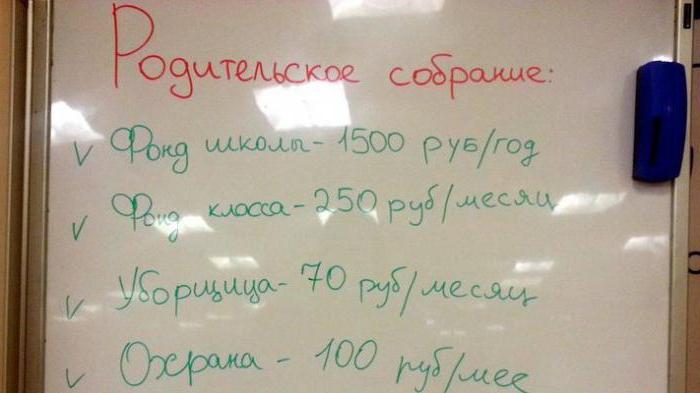 Родительское собрание:
√ Фонд школы - 1500 руб/год
√ Фонд класса - 250 руб/месяц
√ Уборщица - 70 руб/месяц
√ Охрана - 100 руб/мес